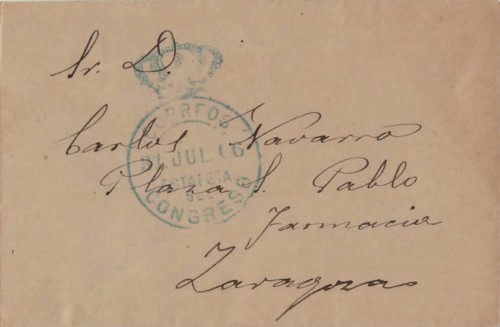 Sr. D.
Carlos Navarro
Plaza S. Pablo
Farmacia
Zaragoza
CORREOS
31 JUL. 06
ESTAFETA
DEL
CONGRESO